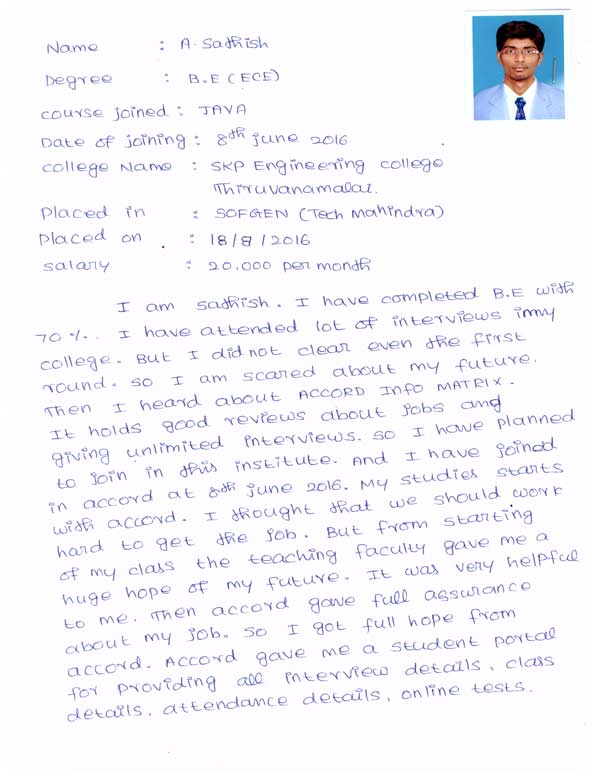 Name : A. Sathish
Degree : B.E (ECE)
course joined : JAVA
Date of joining : 8th june 2016
college Name : SKP Engineering college
Thiruvanamalai.
Placed in : SOFGEN (Tech Mahindra)
Placed on : 18/8/2016
salary : 20,000 per month
I am sathish. I have completed B.E with
70%. I have attended lot of interviews in my
college. But I did not clear even the first
round. so I am scared about my future.
Then I heard about ACCORD Info MATRIX.
It holds good reviews about jobs and
giving unlimited interviews. so I have planned
to join in this institute. And I have joined
in accord at 8th june 2016. My studies starts
with accord. I thought that we should work
hard to get the job. But from starting
of my class the teaching faculty gave me a
huge hope of my future. It was very helpful
to me. Then accord gave full assurance
about my job. so I got full hope from
accord. Accord gave me a student portal
for providing all interview details, class
details, attendance details, online tests.